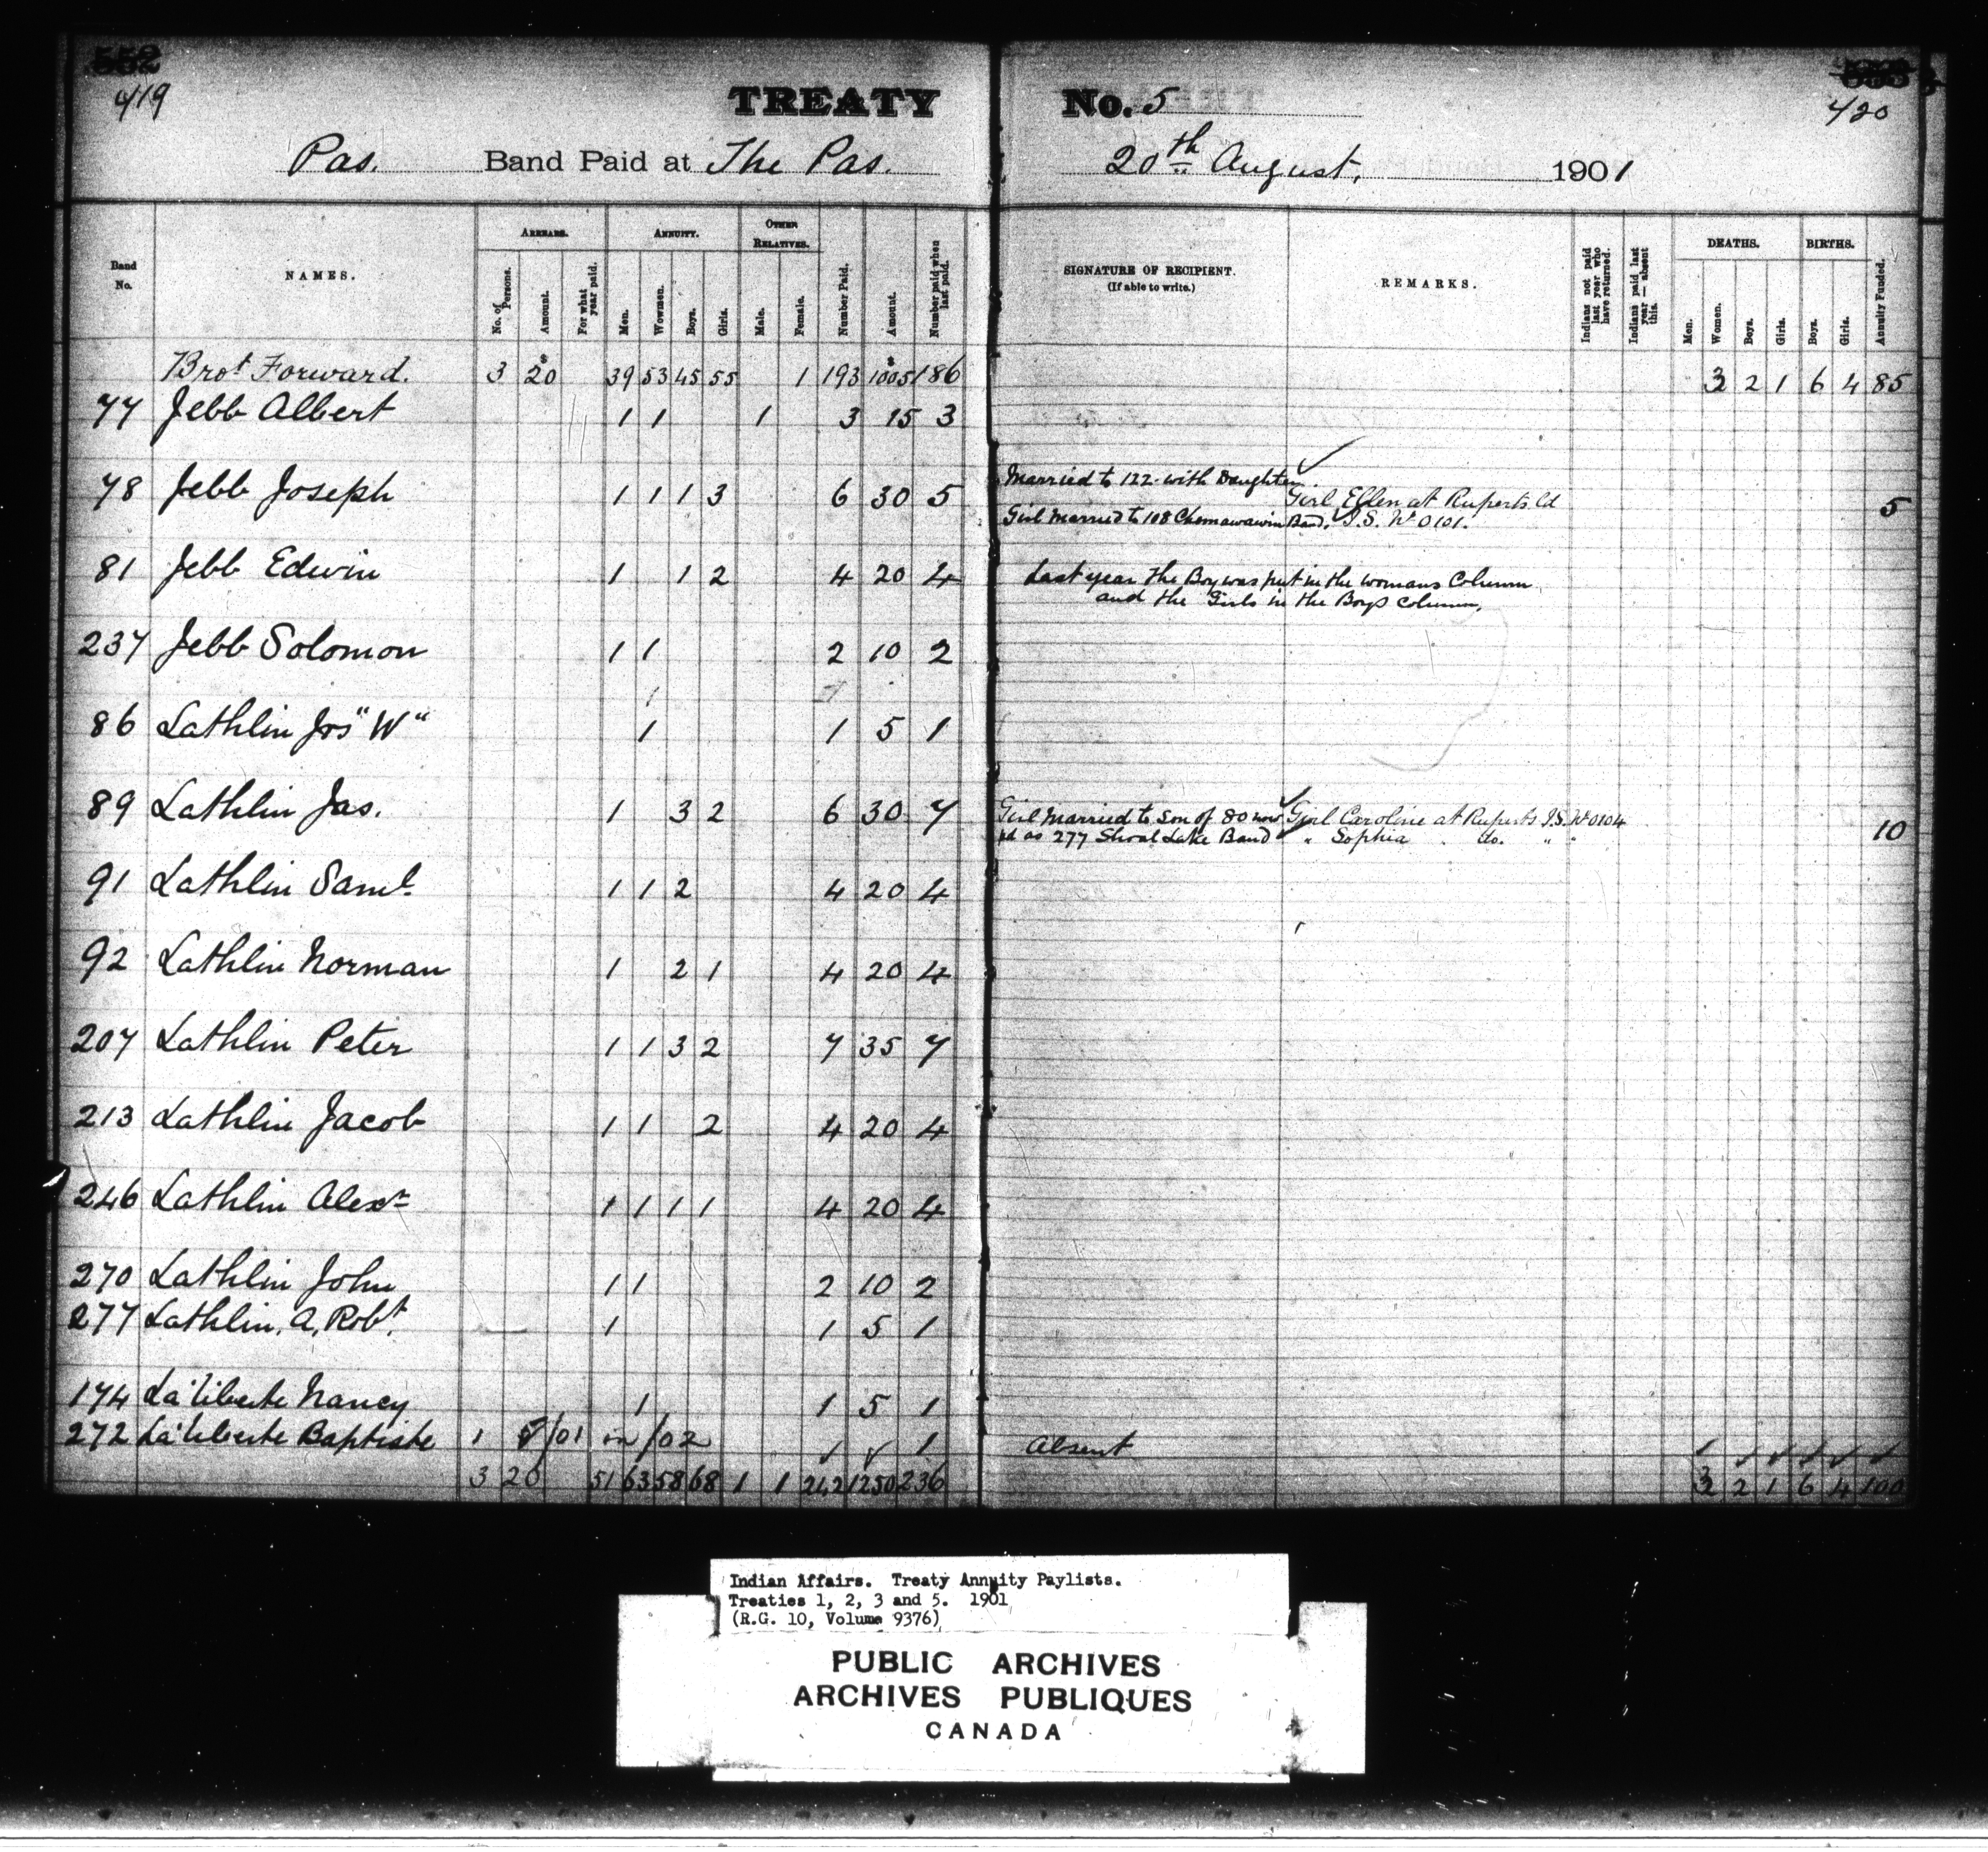 552
419
TREATY No. 5
420
Pas. Band Paid at The Pas. 20th August, 1901
Band No.
NAMES.
ARREARS.
No. of Persons.
Amount.
For what year paid.
ANNUITY.
Men.
Women.
Boys.
Girls.
OTHER RELATIVES.
Male.
Female.
Number Paid.
Amount.
Number paid when last paid.
SIGNATURE OF RECIPIENT.
(If able to write.)
REMARKS.
Indians not paid last year who have returned.
Indians paid last year — absent this.
DEATHS.
Men.
Women.
Boys.
Girls.
BIRTHS.
Boys.
Girls.
Annuity Funded.
Brot Forward. 3 $20 39 53 45 55 1 193 $1005 186 3 2 1 6 4 85
77 Jebb Albert 1 1 1 3 15 3
78 Jebb Joseph 1 1 1 3 6 30 5 Married to 122 with Daughter Girl Ellen at Ruperts Ld 5
Girl Married to 108 Chemawawin Band. I.S. No 0101.
81 Jebb Edwin 1 1 2 4 20 4 Last year the Boy was put in the womans Column
and the Girls in the Boys column.
237 Jebb Solomon 1 1 2 10 2
86 Lathlin Jos "W" 1 1 5 1
89 Lathlin Jas. 1 3 2 6 30 7 Girl Married to Son of 80 now Girl Caroline at Ruperts I.S. No 0104 10
pd as 277 Shoal Lake Band " Sophia do. "
91 Lathlin Saml 1 1 2 4 20 4
92 Lathlin Norman 1 2 1 4 20 4
207 Lathlin Peter 1 1 3 2 7 35 7
213 Lathlin Jacob 1 1 2 4 20 4
246 Lathlin Alexr 1 1 1 1 4 20 4
270 Lathlin John 1 1 2 10 2
277 Lathlin, A, Robt. 1 1 5 1
174 La'liberte Nancy 1 1 5 1
272 La'liberte Baptiste 1 5/01 in /02 1 Absent
3 20 51 63 58 68 1 1 242 1250 236 3 2 1 6 4 100
Indian Affairs. Treaty Annuity Paylists.
Treaties 1, 2, 3 and 5. 1901
(R.G. 10, Volume 9376)
PUBLIC ARCHIVES
ARCHIVES PUBLIQUES
CANADA